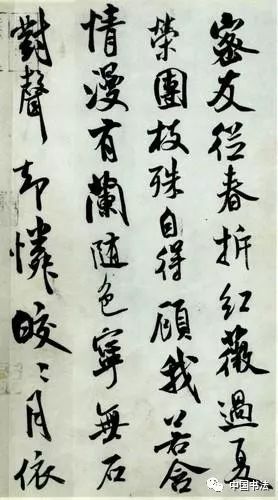 密友从春拆红薇過夏
榮團枝殊自得顧我若含
情漫有蘭随色寧無石
對聲却憐皎〻月依
中国书法